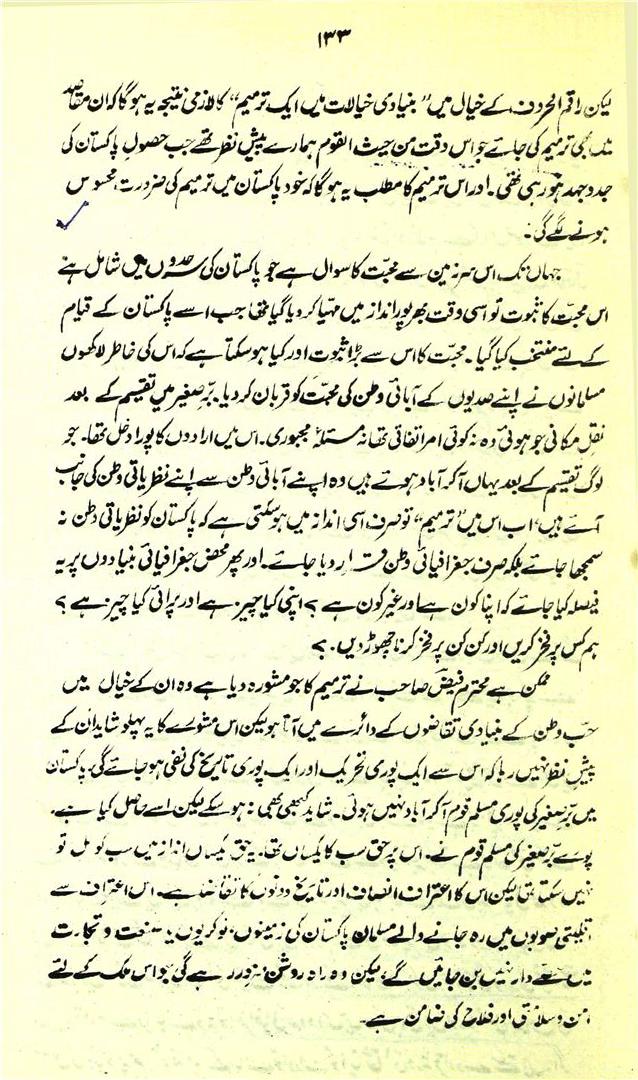 ۱۳۳
لیکن راقم الحروف کے خیال میں "بنیادی خیالات میں ایک ترمیم" کا لازمی نتیجہ یہ ہوگا کہ ان مقاصد
میں بھی ترمیم کی جائے جو اس وقت من حیث القوم ہمارے پیش نظر تھے جب حصولِ پاکستان کی
جدوجہد ہو رہی تھی۔ اور اس ترمیم کا مطلب یہ ہوگا کہ خود پاکستان میں ترمیم کی ضرورت محسوس
ہونے لگے گی۔
جہاں تک اس سرزمین سے محبت کا سوال ہے جو پاکستان کی سرحدوں میں شامل ہے
اس محبت کا ثبوت تو اسی وقت بھرپور انداز میں مہیا کر دیا گیا تھا جب اسے پاکستان کے قیام
کے لئے منتخب کیا گیا۔ محبت کا اس سے بڑا ثبوت اور کیا ہو سکتا ہے کہ اس کی خاطر لاکھوں
مسلمانوں نے اپنے صدیوں کے آبائی وطن کی محبت کو قربان کر دیا۔ برصغیر میں تقسیم کے بعد
نقل مکانی جو ہوئی وہ نہ کوئی امر اتفاقی تھا نہ مسئلہ مجبوری۔ اس میں ارادوں کا پورا دخل تھا۔ جو
لوگ تقسیم کے بعد یہاں آکر آباد ہوئے ہیں وہ اپنے آبائی وطن سے اپنے نظریاتی وطن کی جانب
آئے ہیں، اب اس میں "ترمیم" تو صرف اسی انداز میں ہو سکتی ہے کہ پاکستان کو نظریاتی وطن نہ
سمجھا جائے بلکہ صرف جغرافیائی وطن قرار دیا جائے۔ اور پھر محض جغرافیائی بنیادوں پر یہ
فیصلہ کیا جائے کہ اپنا کون ہے اور غیر کون ہے؟ اپنی کیا چیز ہے اور پرائی کیا چیز ہے؟
ہم کس پر فخر کریں اور کن کن پر فخر کرنا چھوڑ دیں۔؟
ممکن ہے محترم فیض صاحب نے ترمیم کا جو مشورہ دیا ہے وہ ان کے خیال میں
حب وطن کے بنیادی تقاضوں کے دائرے میں آتا ہو لیکن اس مشورے کا یہ پہلو شاید ان کے
پیش نظر نہیں رہا کہ اس سے ایک پوری تحریک اور ایک پوری تاریخ کی نفی ہو جائے گی۔ پاکستان
میں برصغیر کی پوری مسلم قوم آکر آباد نہیں ہوئی۔ شاید کبھی بھی نہ ہو سکے لیکن اسے حاصل کیا ہے۔
پورے برصغیر کی مسلم قوم نے۔ اس پر حق سب کا یکساں تھا۔ یہ حق یکساں انداز میں سب کو مل تو
نہیں سکتا تھا لیکن اس کا اعتراف انصاف اور تاریخ دونوں کا تقاضا ہے۔ اس اعتراف سے
اقلیتی صوبوں میں رہ جانے والے مسلمان پاکستان کی زمینوں، نوکریوں یا صنعت و تجارت
میں حصے دار نہیں بن جائیں گے، لیکن وہ راہ روشن ضرور رہے گی جو اس ملک کے لئے
امن و سلامتی اور فلاح کی ضامن ہے۔